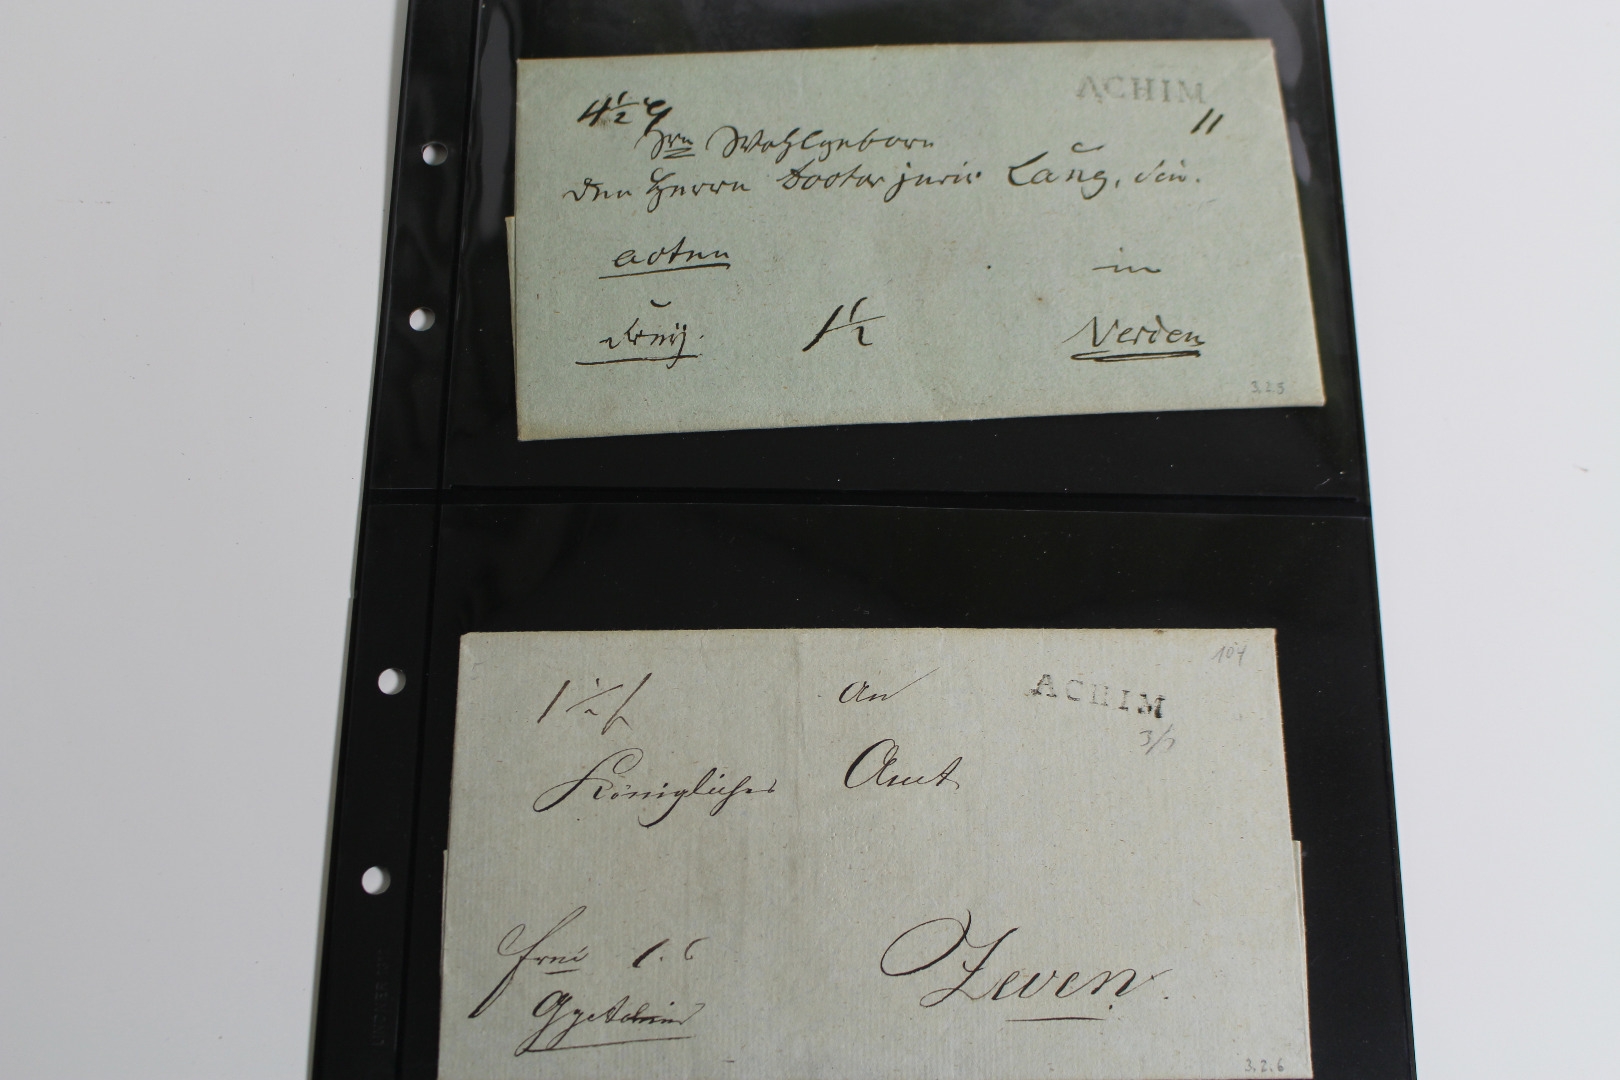 ACHIM
4 1/2
11
Hrn Wohlgeborn
Dem Herrn Doctor juris Lang, sen.
acten
in
frey.
1 1/2
Verden
3.2.5
104
1 1/2
An
ACHIM
3/7
Königliches Amt
frei 1. 6
Zeven
3.2.6